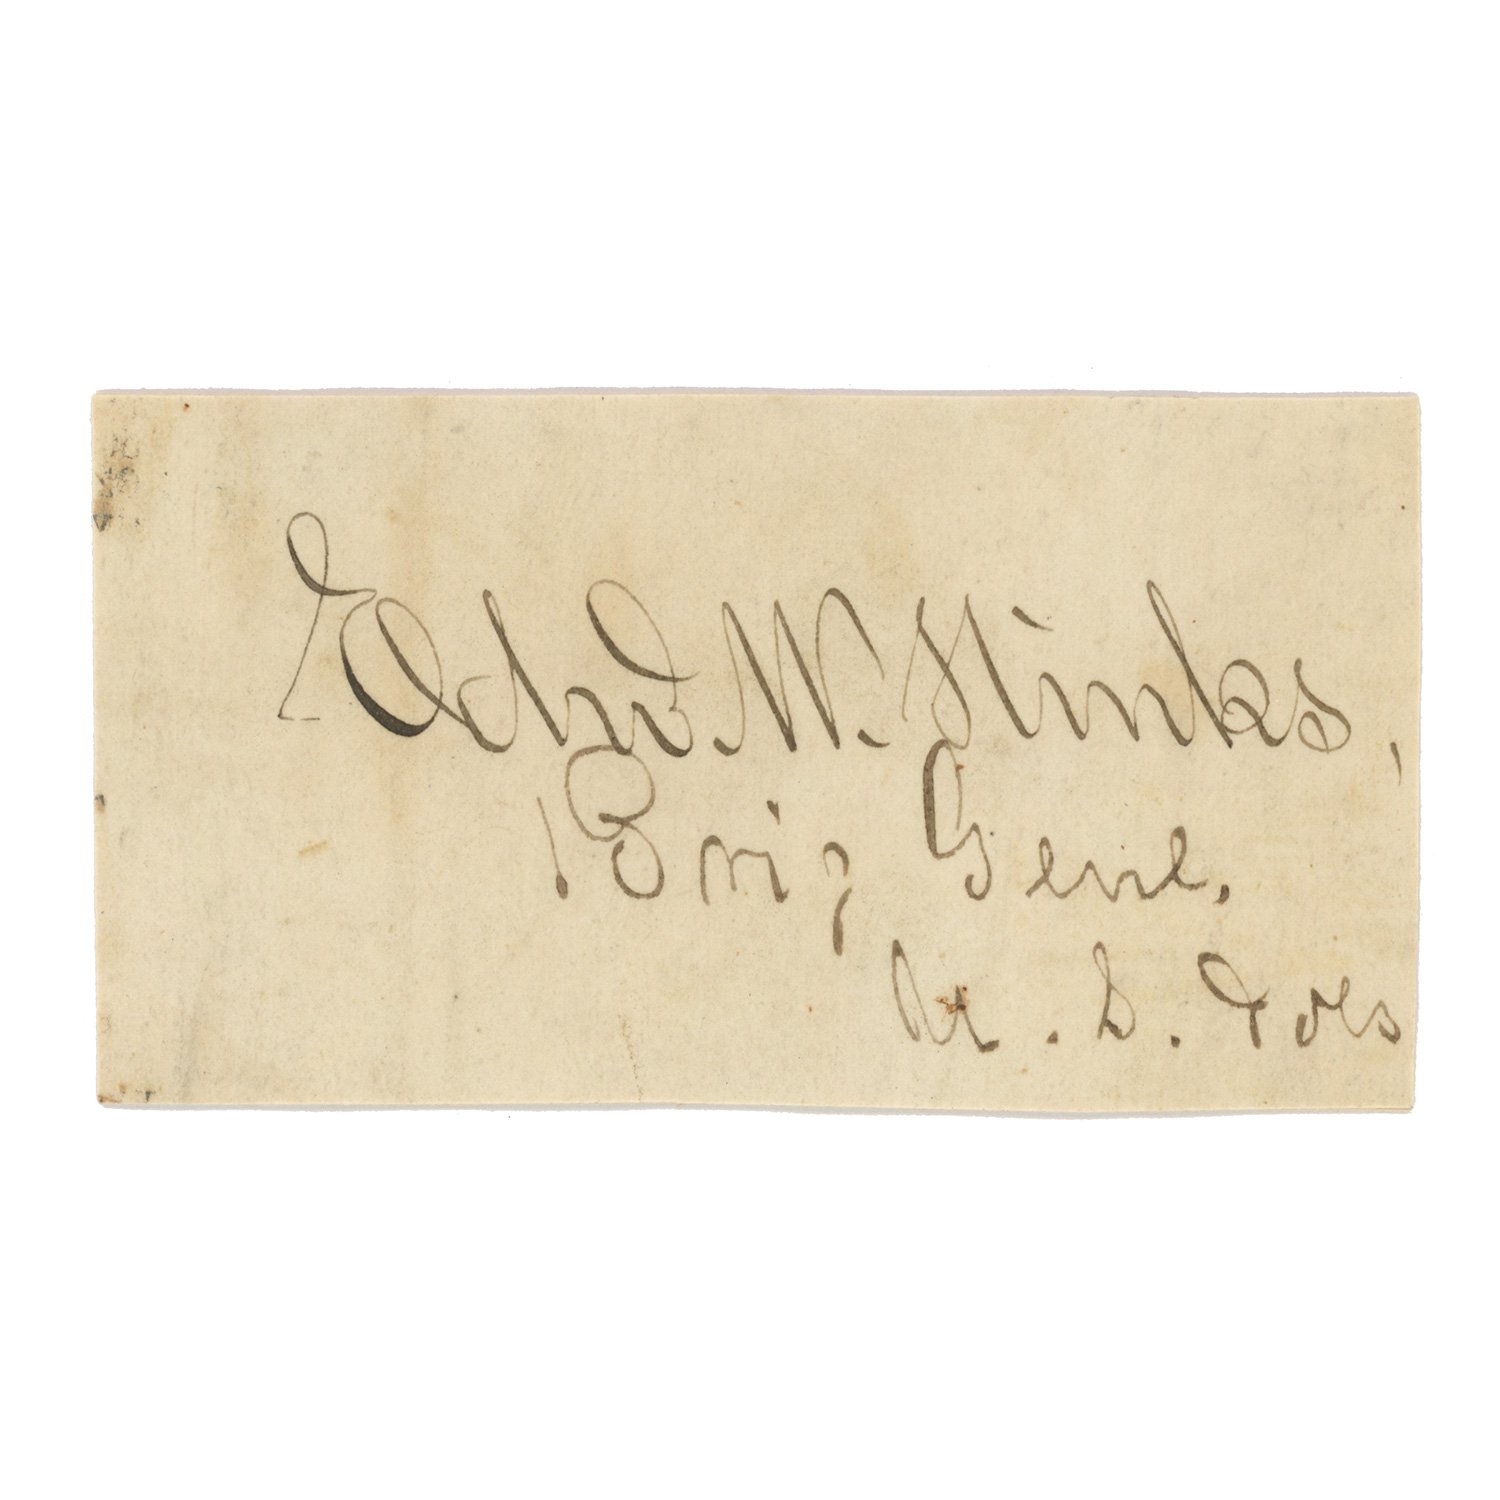 Edw. W. Hinks,
Brig Genl.
U. S. Vols